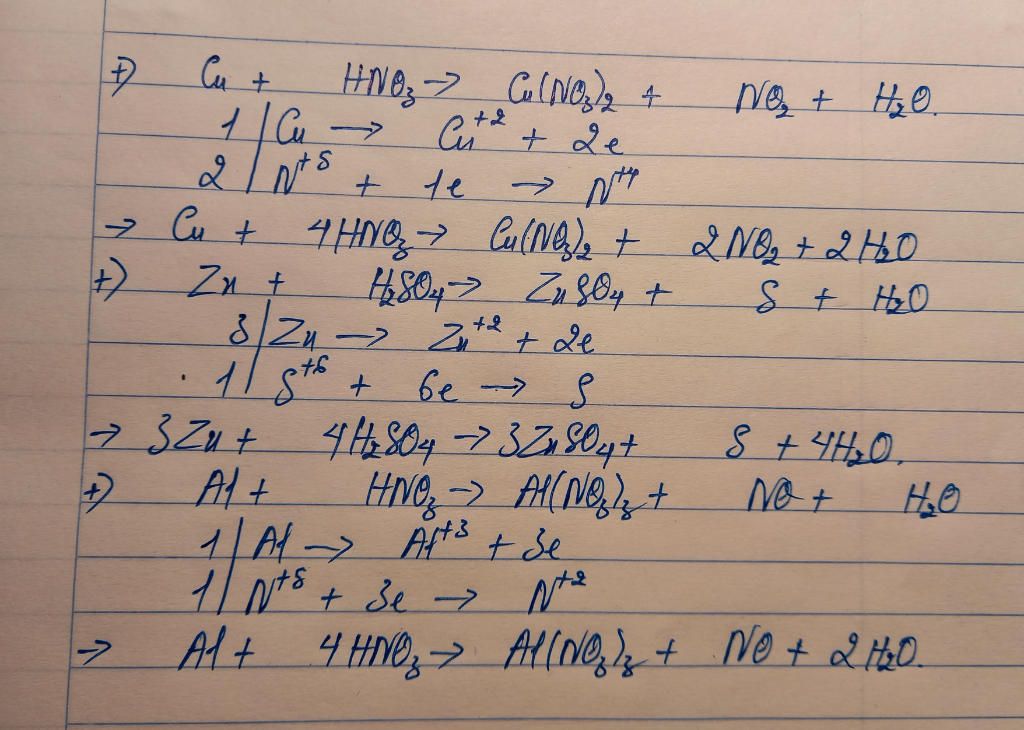 +) Cu + HNO₃ → Cu(NO₃)₂ + NO₂ + H₂O.
1 | Cu → Cu⁺² + 2e
2 | N⁺⁵ + 1e → N⁺⁴
→ Cu + 4HNO₃ → Cu(NO₃)₂ + 2NO₂ + 2H₂O
+) Zn + H₂SO₄ → ZnSO₄ + S + H₂O
3 | Zn → Zn⁺² + 2e
1 | S⁺⁶ + 6e → S
→ 3Zn + 4H₂SO₄ → 3ZnSO₄ + S + 4H₂O.
+) Al + HNO₃ → Al(NO₃)₃ + NO + H₂O
1 | Al → Al⁺³ + 3e
1 | N⁺⁵ + 3e → N⁺²
→ Al + 4HNO₃ → Al(NO₃)₃ + NO + 2H₂O.